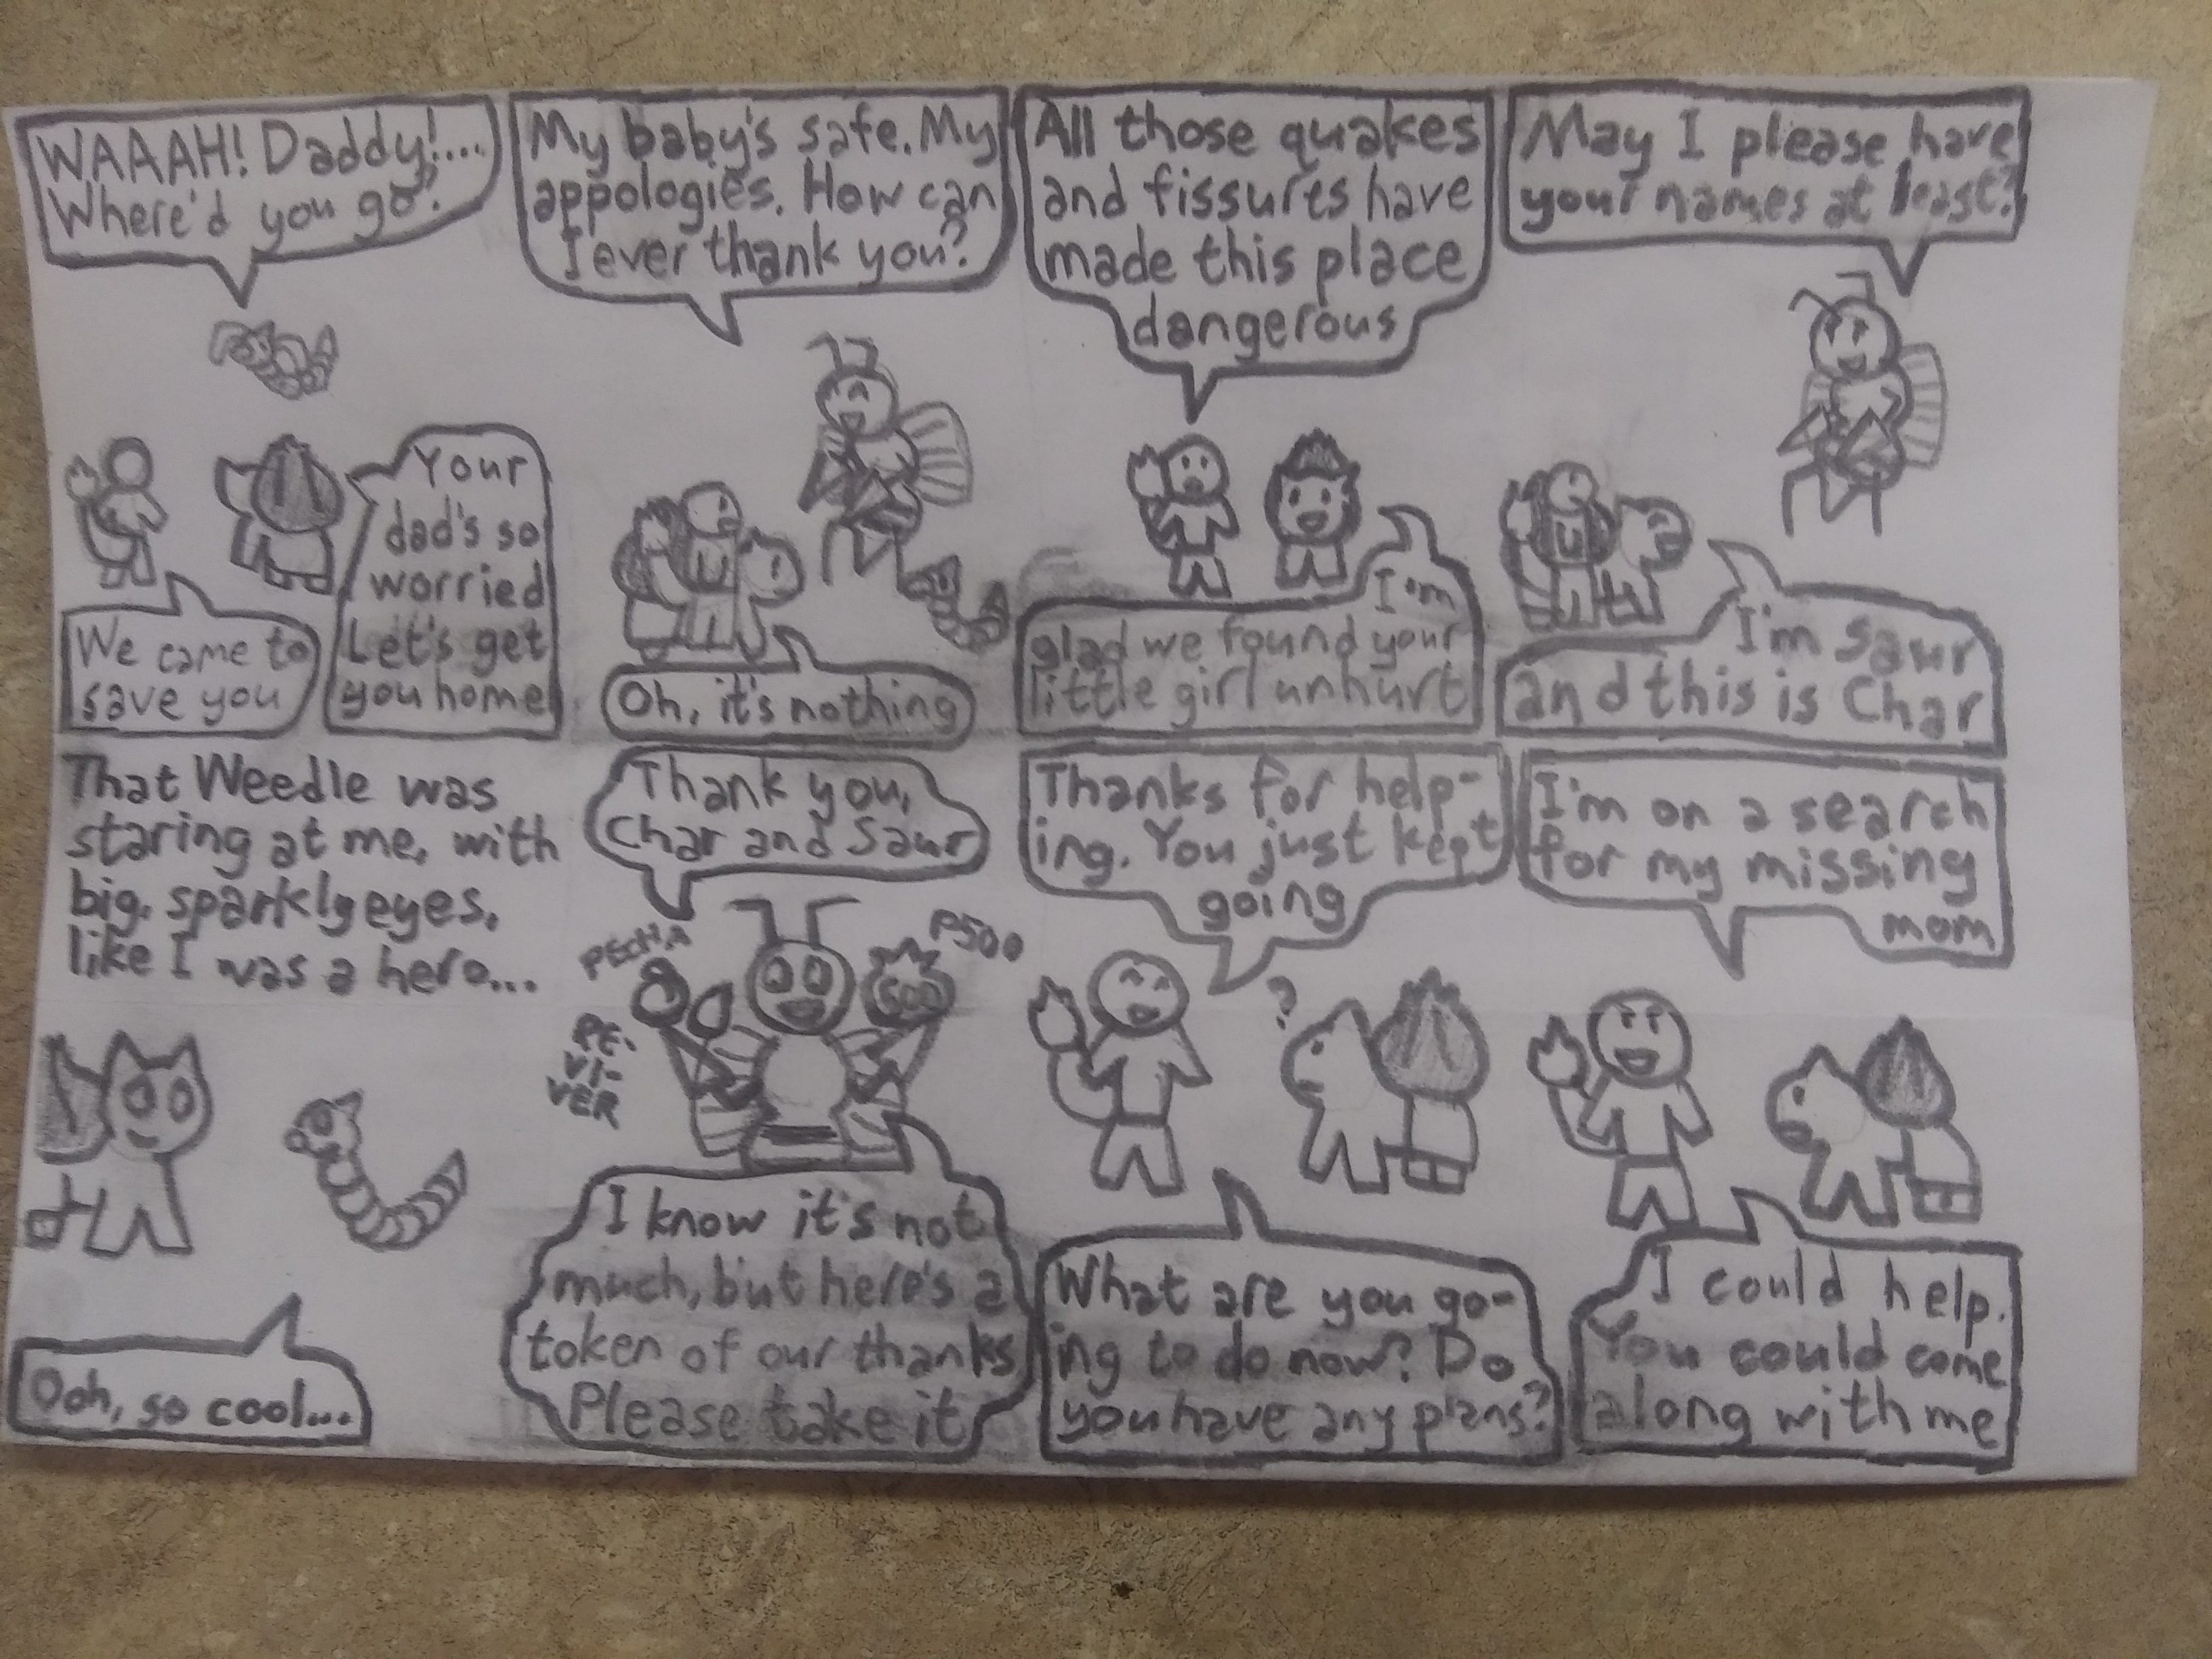 WAAAH! Daddy!....
Where'd you go?
Your
dad's so
worried
Let's get
you home
We came to
save you
My baby's safe. My
appologies. How can
I ever thank you?
Oh, it's nothing
All those quakes
and fissures have
made this place
dangerous
I'm
glad we found your
little girl unhurt
May I please have
your names at least?
I'm Saur
and this is Char
That Weedle was
staring at me, with
big, sparkly eyes,
like I was a hero...
Ooh, so cool...
Thank you,
Char and Saur
PECHA
P500
500
RE-
VI-
VER
I know it's not
much, but here's a
token of our thanks
Please take it
Thanks for help-
ing. You just kept
going
?
What are you go-
ing to do now? Do
you have any plans?
I'm on a search
for my missing
mom
I could help.
You could come
along with me